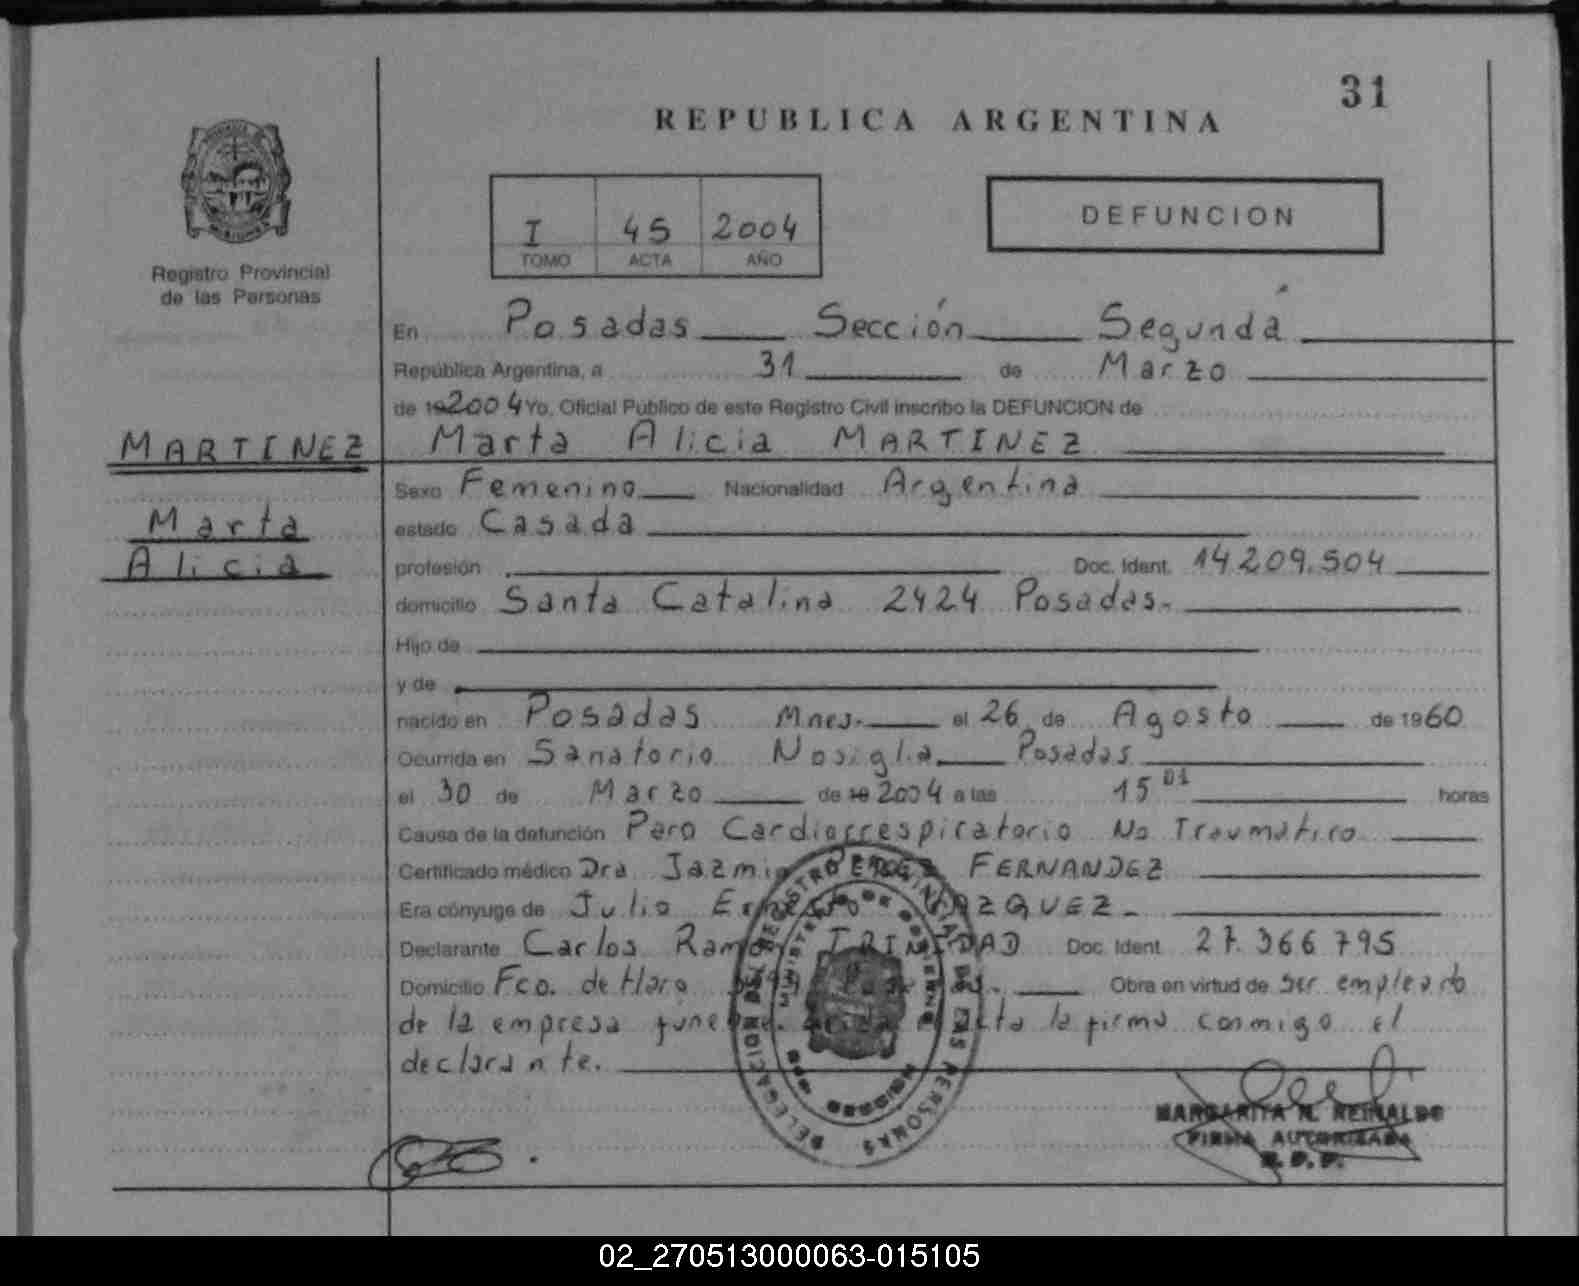 31
REPUBLICA ARGENTINA
Registro Provincial
de las Personas
I 45 2004
TOMO ACTA AÑO
DEFUNCION
En Posadas Sección Segunda
República Argentina, a 31 de Marzo
de 192004 Yo, Oficial Público de este Registro Civil inscribo la DEFUNCION de
MARTINEZ Marta Alicia MARTINEZ
Sexo Femenino Nacionalidad Argentina
Marta estado Casada
Alicia profesión Doc. Ident. 14.209.504
domicilio Santa Catalina 2424 Posadas.
Hijo de
y de
nacido en Posadas Mnes. el 26 de Agosto de 1960
Ocurrida en Sanatorio Nosiglia Posadas
el 30 de Marzo de 19 2004 a las 15 01 horas
Causa de la defunción Paro Cardiorrespiratorio No Traumático
Certificado médico Dra Jazmin FERNANDEZ
Era cónyuge de Julio Ernesto VAZQUEZ.
Declarante Carlos Ramon TRINIDAD Doc. Ident. 27.366.795
Domicilio Fco. de Haro Obra en virtud de ser empleado
de la empresa la firma conmigo el
declarante.
DELEGACION DEL REGISTRO PROVINCIAL DE LAS PERSONAS
MINISTERIO DE GOBIERNO
MARGARITA N. REINALDO
FIRMA AUTORIZADA
02_270513000063-015105